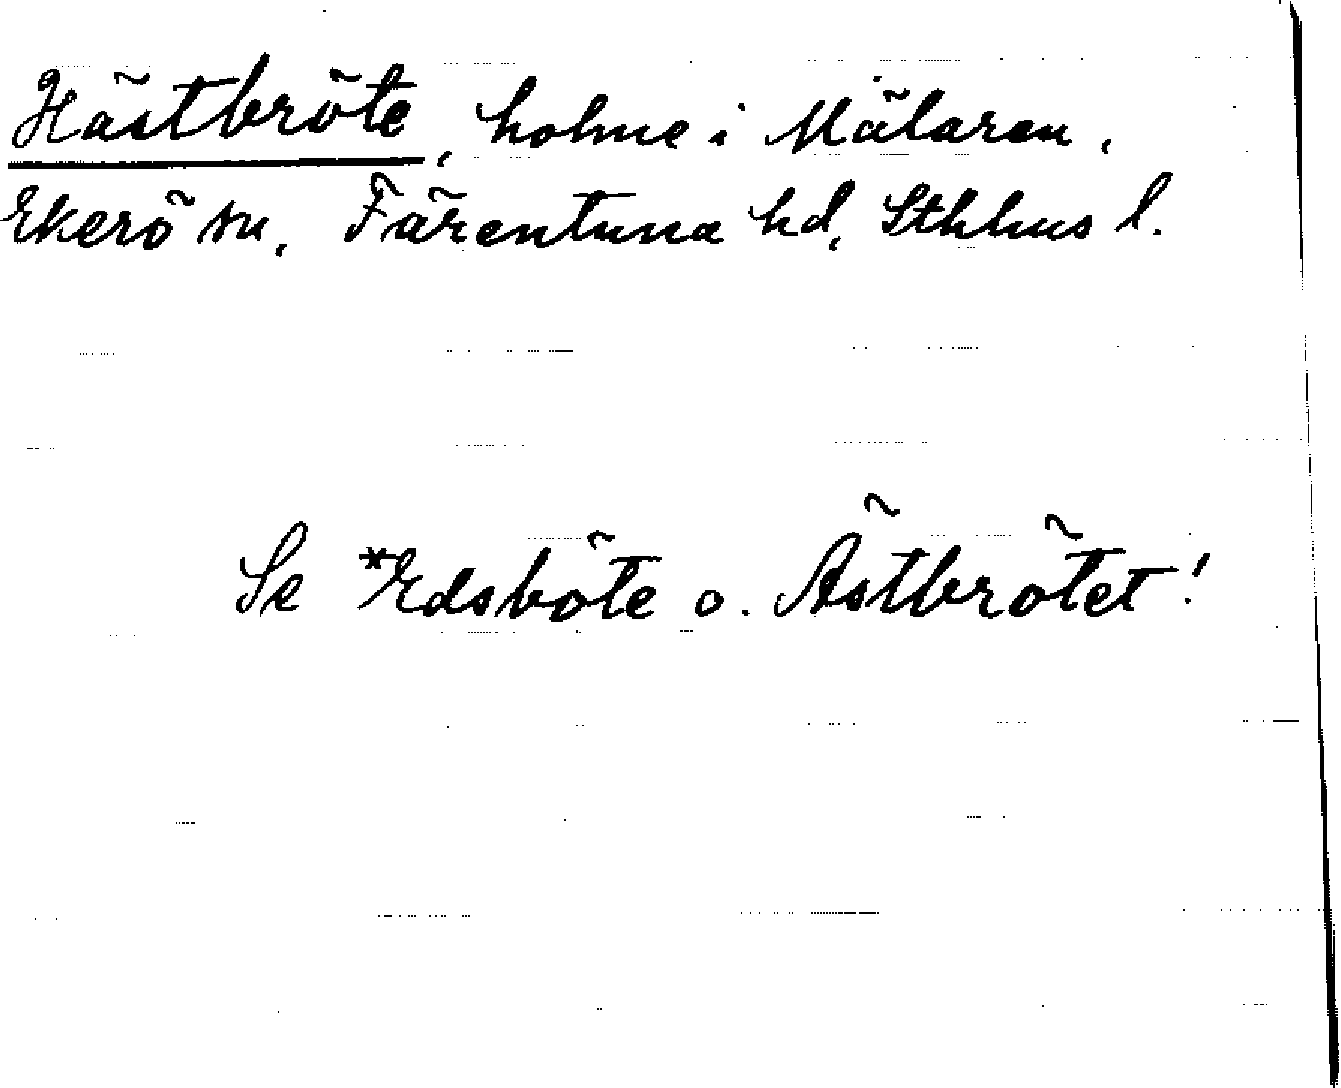 Hästbröte, holme i Mälaren,
Ekerö sn, Färentuna hd, Sthlms l.
Se *Edsböte o. Ästbrötet!